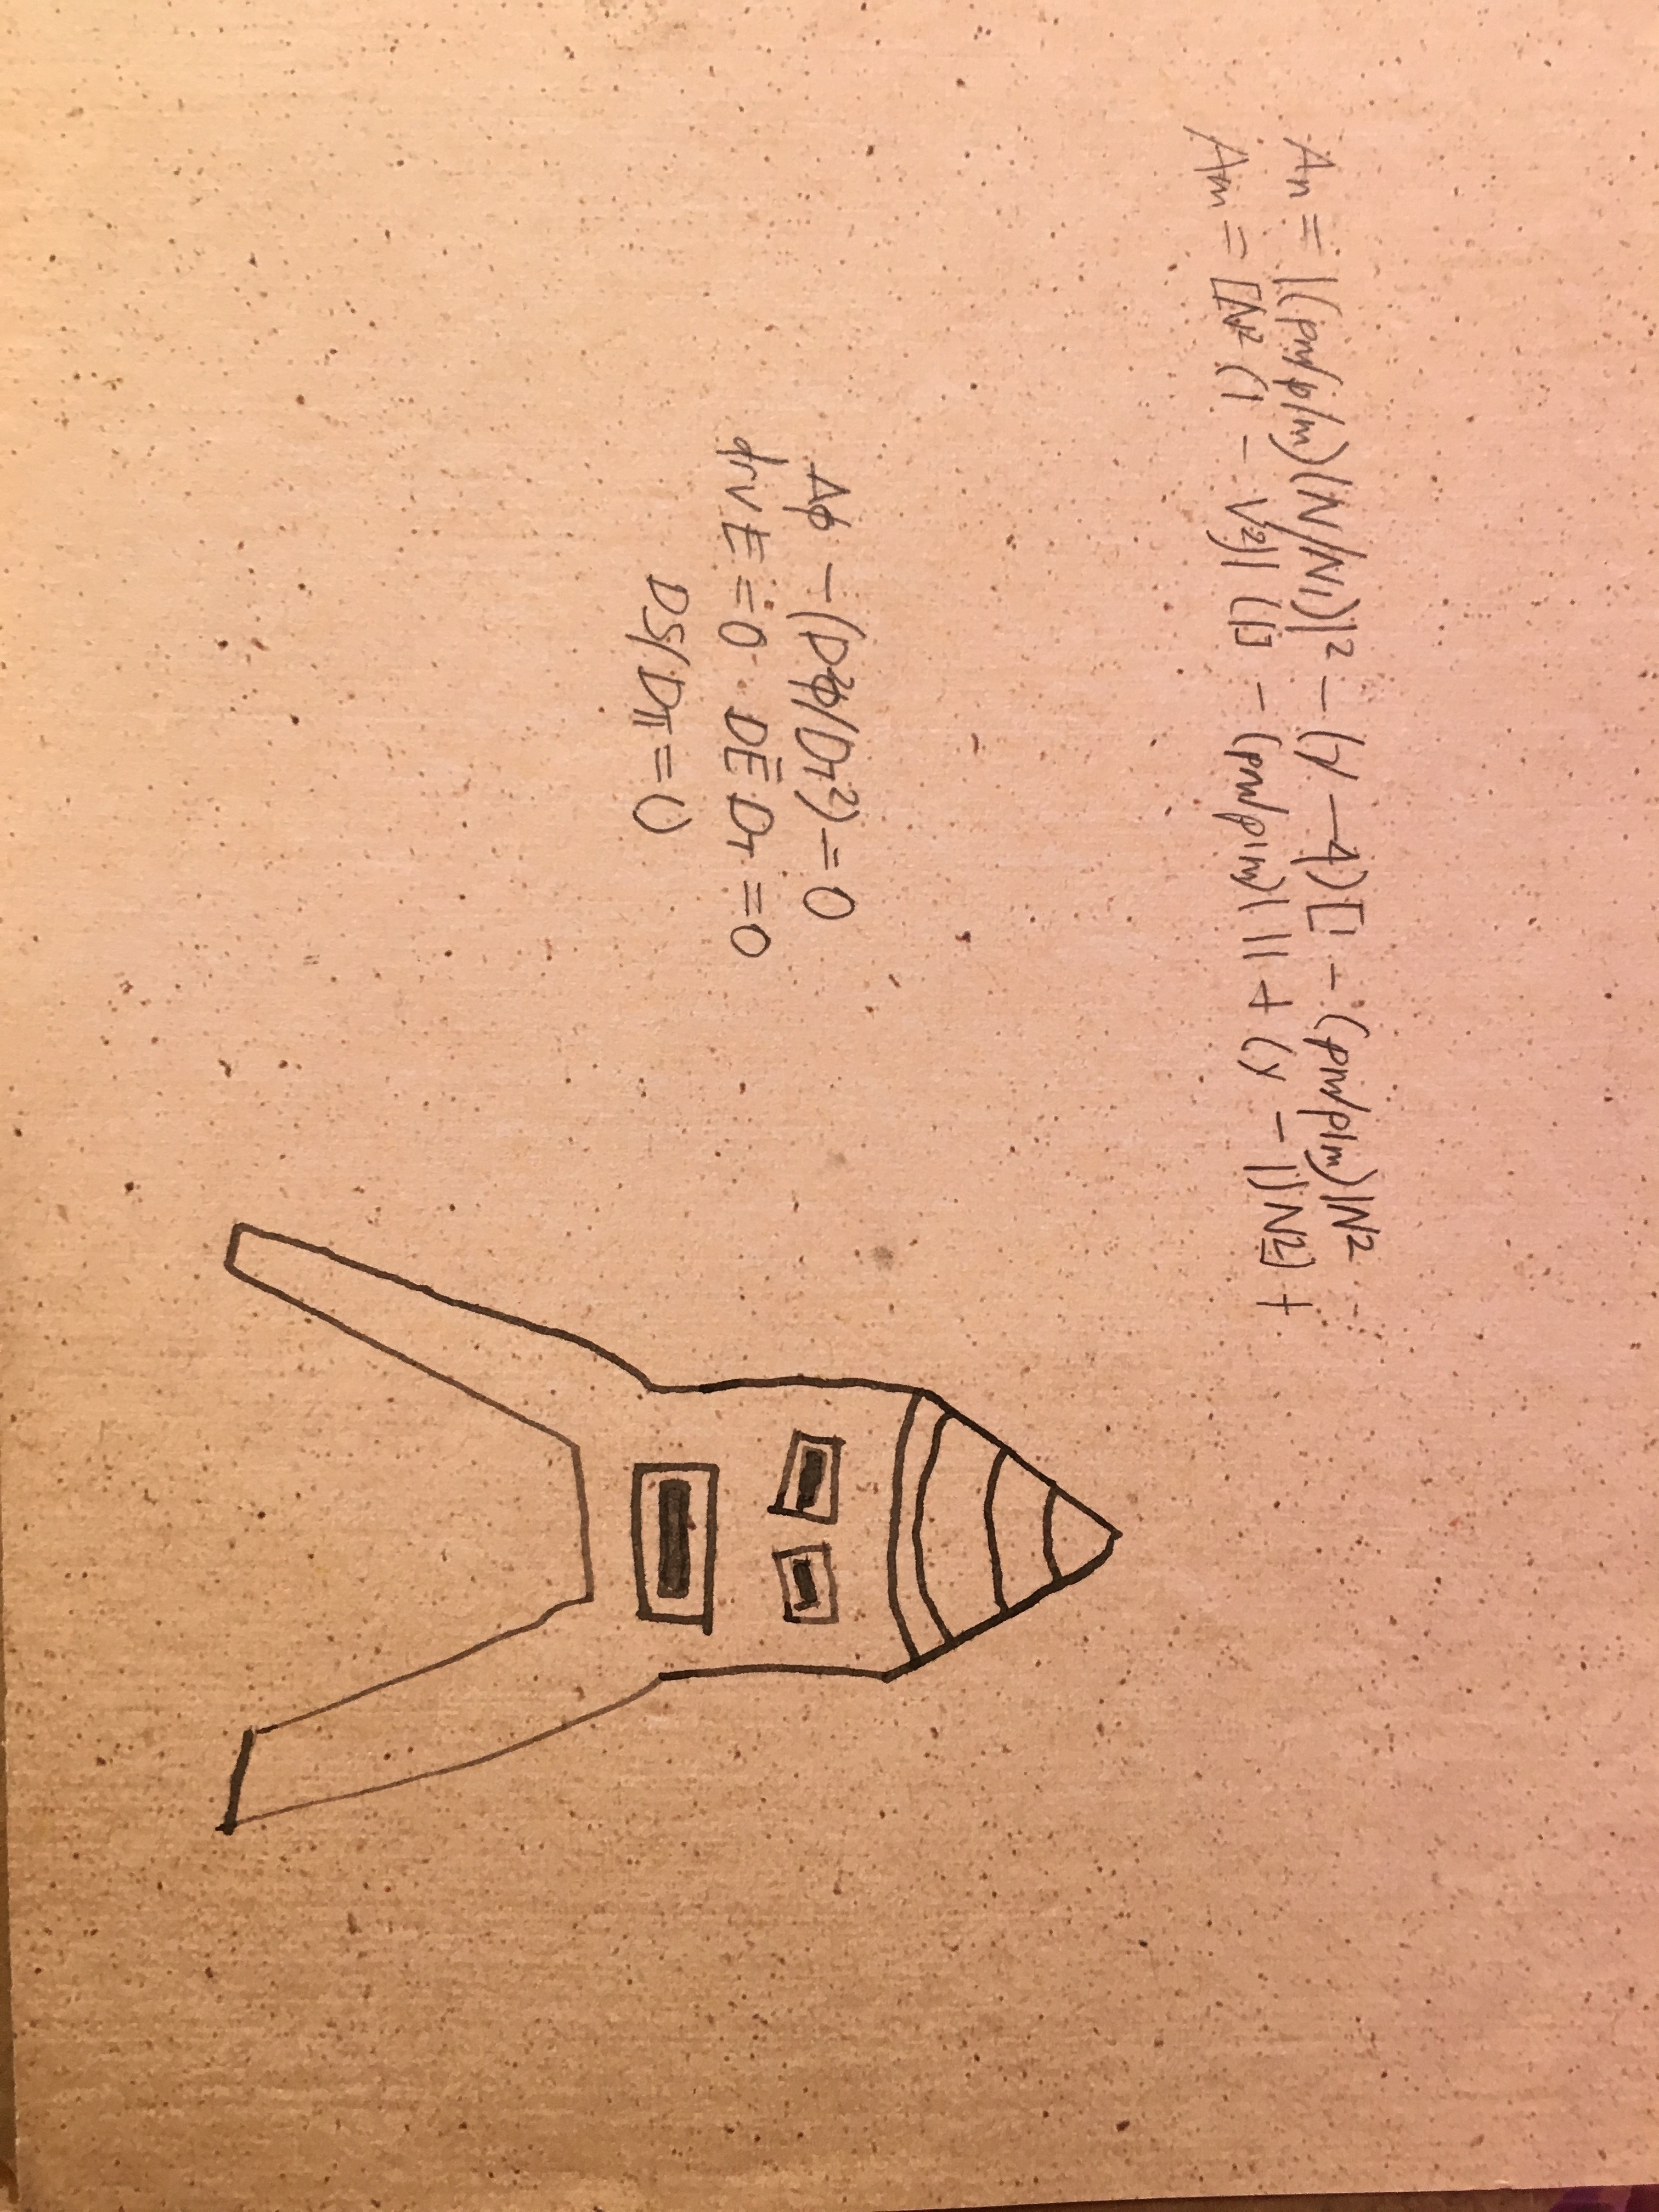 An = |(pm/p1m)(N/N1)|² - (y - 4)[1 - (pm/p1m)|N²
Am = [N² (1 - V²)| (1] - (pm/p1m)| 11 + (y - 1)|N²) +
Aφ - (D²φ/Dτ²) = 0
drv E = 0 DE Dτ = 0
DS/Dπ = 0